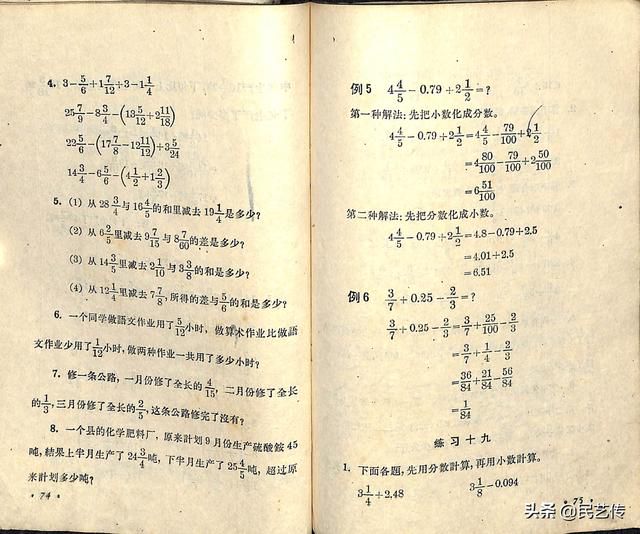 4. 3−5/6+1 7/12+3−1 1/4
25 7/9−8 3/4−(13 5/12+2 11/18)
22 5/6−(17 7/8−12 11/12)+3 5/24
14 3/4−6 5/6−(4 1/2+1 2/3)
5. (1) 从 28 3/4 与 16 4/5 的和里减去 19 1/4 是多少?
(2) 从 6 2/5 里减去 9 7/15 与 8 7/60 的差是多少?
(3) 从 14 3/5 里减去 2 1/10 与 3 3/8 的和是多少?
(4) 从 12 1/4 里减去 7 7/8, 所得的差与 5/6 的和是多少?
6. 一个同学做語文作业用了 5/12 小时, 做算术作业比做語
文作业少用了 1/12 小时, 做两种作业一共用了多少小时?
7. 修一条公路, 一月份修了全长的 4/15, 二月份修了全长
的 1/3, 三月份修了全长的 2/5, 这条公路修完了没有?
8. 一个县的化学肥料厂, 原来計划 9 月份生产硫酸銨 45
吨, 結果上半月生产了 24 3/4 吨, 下半月生产了 25 4/5 吨, 超过原
来計划多少吨?
• 74 •
例 5 4 4/5 − 0.79 + 2 1/2 = ?
第一种解法: 先把小数化成分数。
4 4/5 − 0.79 + 2 1/2 = 4 4/5 − 79/100 + 2 1/2
= 4 80/100 − 79/100 + 2 50/100
= 6 51/100
第二种解法: 先把分数化成小数。
4 4/5 − 0.79 + 2 1/2 = 4.8−0.79+2.5
= 4.01+2.5
= 6.51
例 6 3/7 + 0.25 − 2/3 = ?
3/7 + 0.25 − 2/3 = 3/7 + 25/100 − 2/3
= 3/7 + 1/4 − 2/3
= 36/84 + 21/84 − 56/84
= 1/84
练 习 十 九
1. 下面各题, 先用分数計算, 再用小数計算。
3 1/4 + 2.48 3 1/8 − 0.094
• 75 •
头条 @民艺传